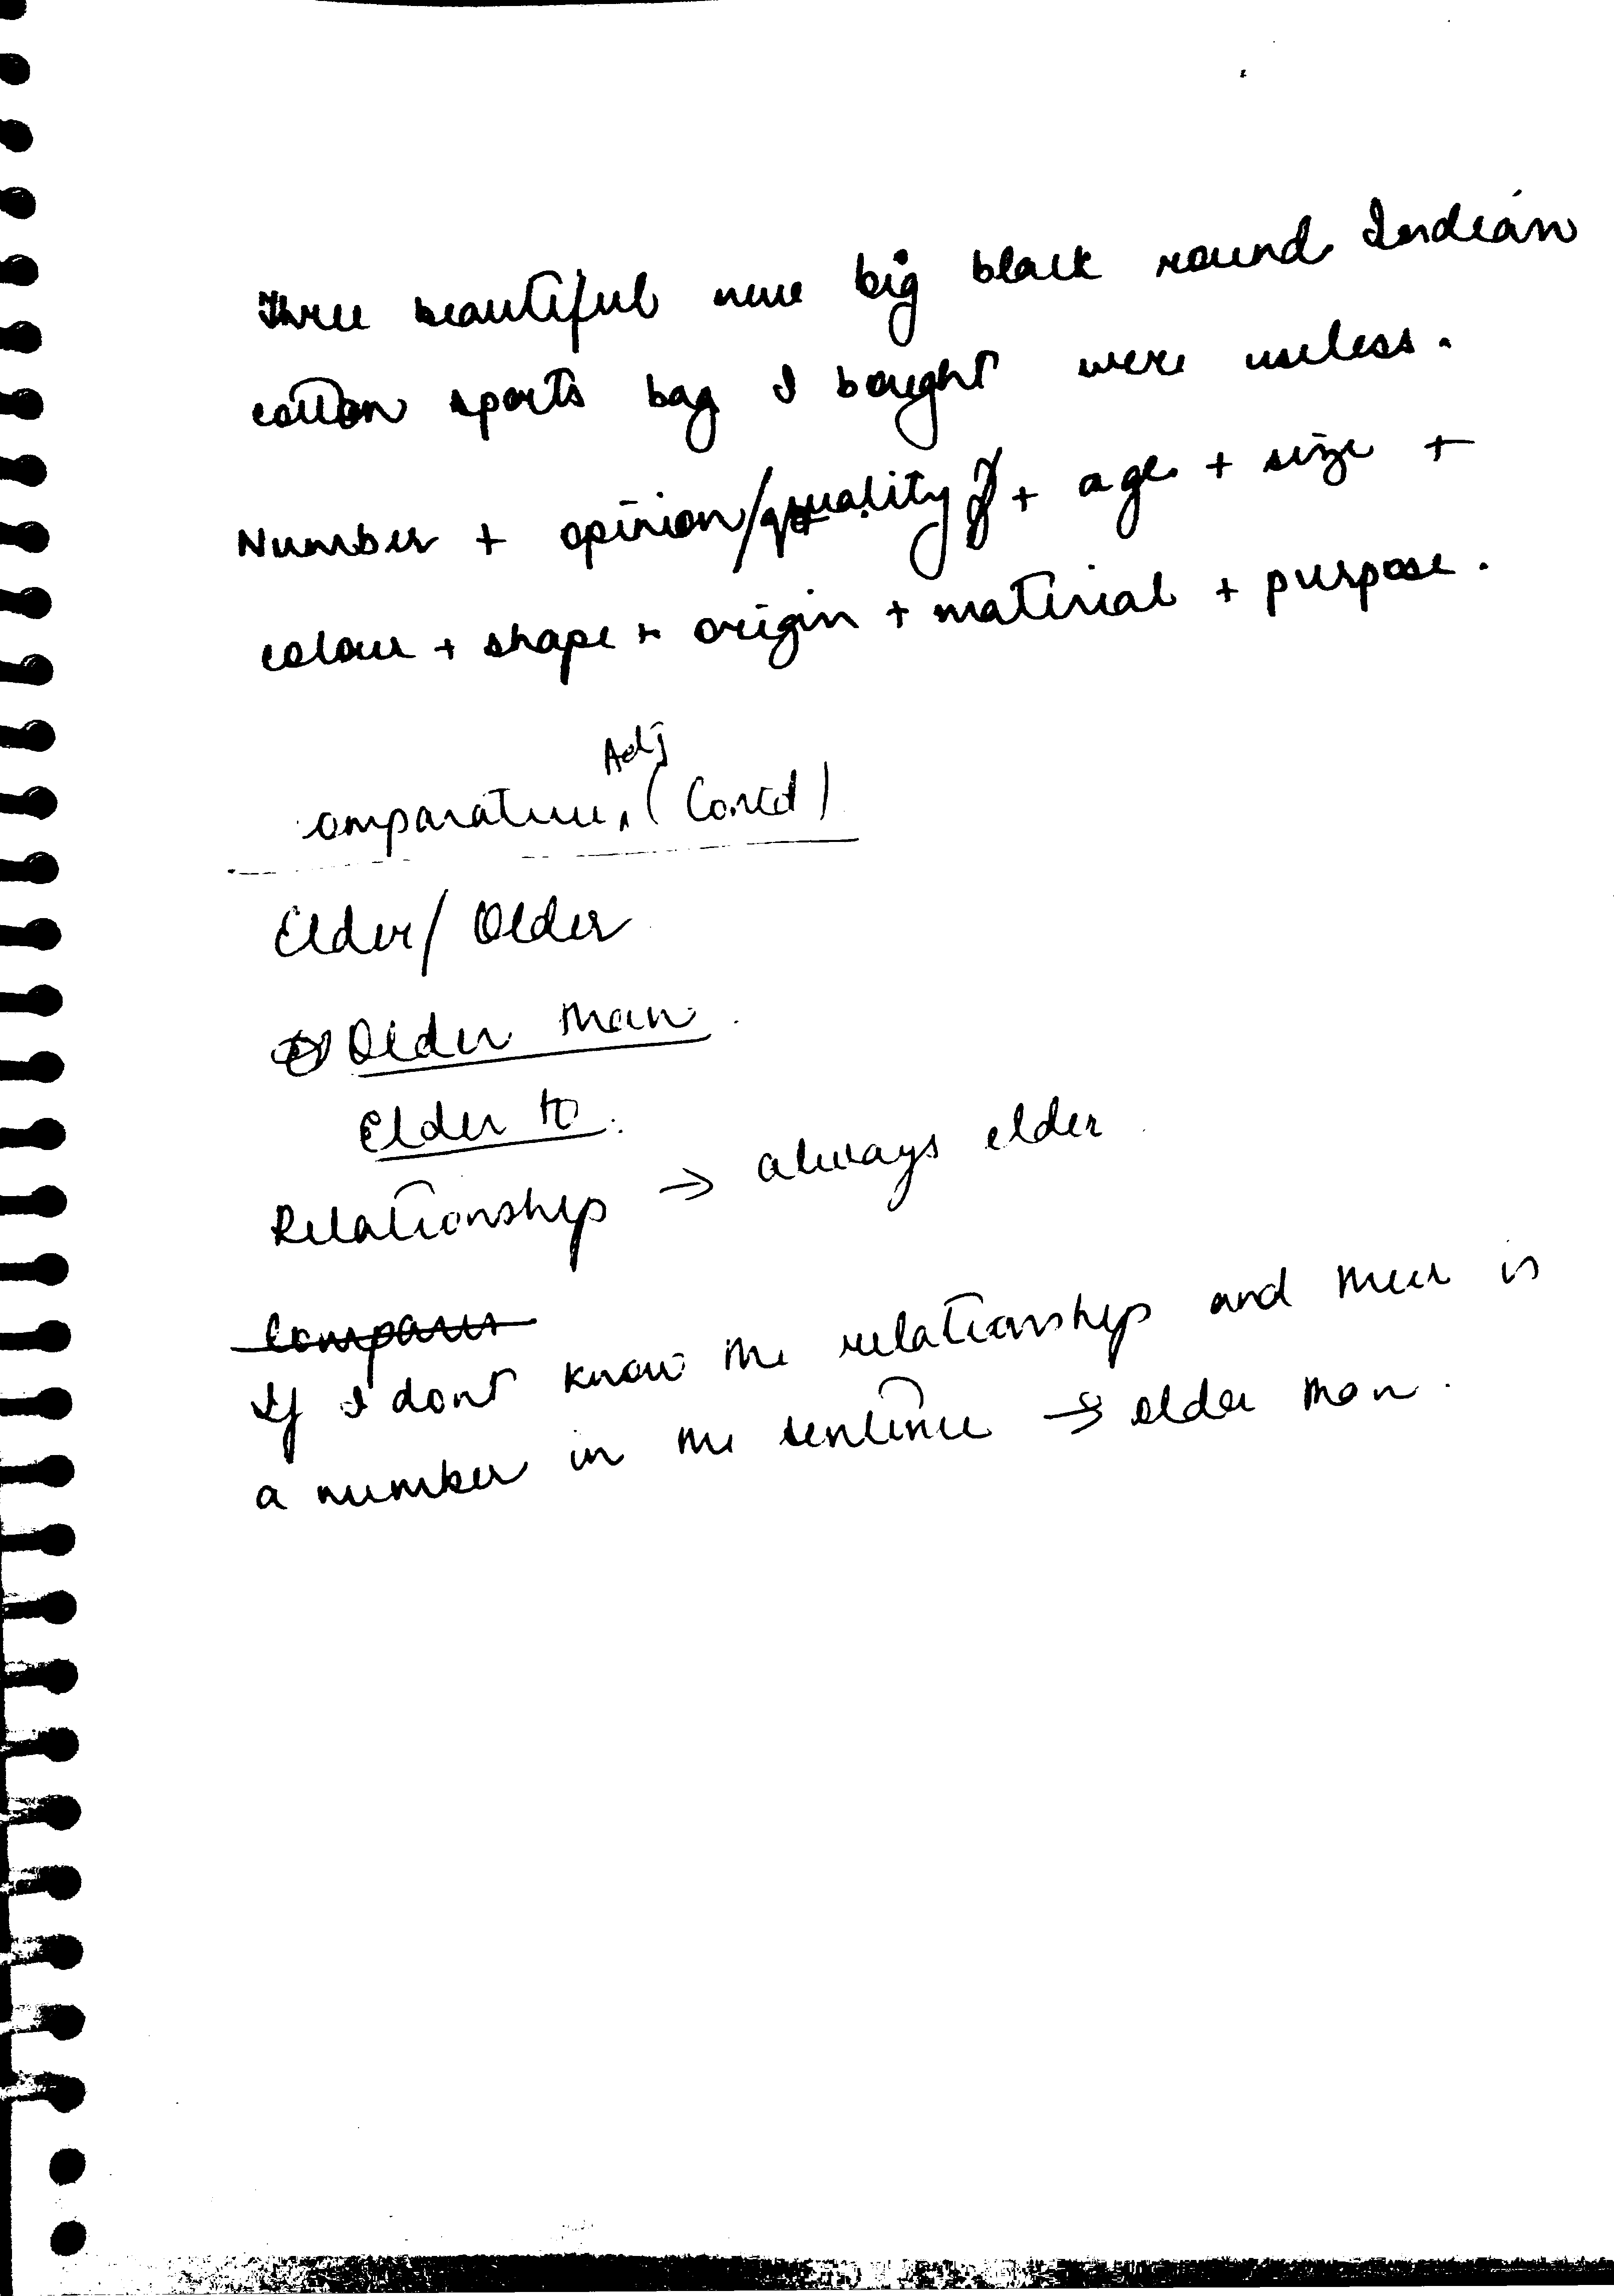 Three beautiful new big black round Indian
cotton sports bag I bought were useless.
Number + opinion/quality + age + size +
colour + shape + origin + material + purpose.
Adj
omparative (Contd)
Elder/ Older
Older than.
Elder to.
Relationship → always elder
Compare
If I dont know the relationship and there is
a number in the sentence → older than.